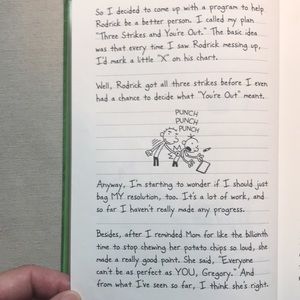 So I decided to come up with a program to help
Rodrick be a better person. I called my plan
"Three Strikes and You're Out." The basic idea
was that every time I saw Rodrick messing up,
I'd mark a little "X" on his chart.
Well, Rodrick got all three strikes before I even
had a chance to decide what "You're Out" meant.
PUNCH
PUNCH
PUNCH
Anyway, I'm starting to wonder if I should just
bag MY resolution, too. It's a lot of work, and
so far I haven't really made any progress.
Besides, after I reminded Mom for like the billionth
time to stop chewing her potato chips so loud, she
made a really good point. She said, "Everyone
can't be as perfect as YOU, Gregory." And
from what I've seen so far, I think she's right.